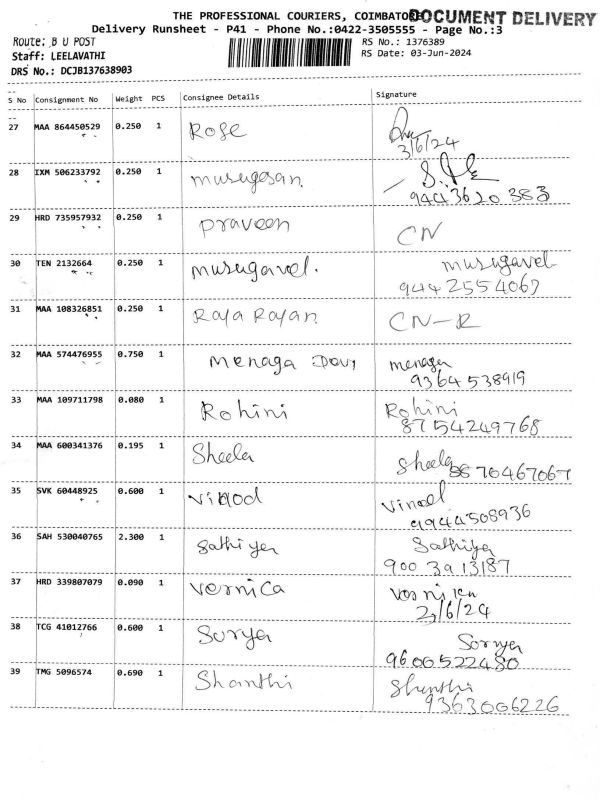 THE PROFESSIONAL COURIERS, COIMBATORE
DOCUMENT DELIVERY
Delivery Runsheet - P41 - Phone No.:0422-3505555 - Page No.:3
Route: B U POST
RS No.: 1376389
Staff: LEELAVATHI
RS Date: 03-Jun-2024
DRS No.: DCJB137638903
S No Consignment No Weight PCS Consignee Details Signature
27 MAA 864450529 0.250 1 Rose
3/6/24
28 IXM 506233792 0.250 1 murugesan
9443620 383
29 HRD 735957932 0.250 1 praveen CN
30 TEN 2132664 0.250 1 murugavel. murugavel
9442554067
31 MAA 108326851 0.250 1 Raja Rajan CN-R
32 MAA 574476955 0.750 1 Menaga Devi menaga
9364538919
33 MAA 109711798 0.080 1 Rohini Rohini
8754249768
34 MAA 600341376 0.195 1 Sheela Sheela
35 SVK 60448925 0.600 1 Vinod Vinod
9944508936
36 SAH 530040765 2.300 1 Sathiya Sathiya
900 3913187
37 HRD 339807079 0.090 1 Vernica
/6/24
38 TCG 41012766 0.600 1 Surya Sorya
9600522480
39 TMG 5096574 0.690 1 Shanthi Shanthi
9363006226